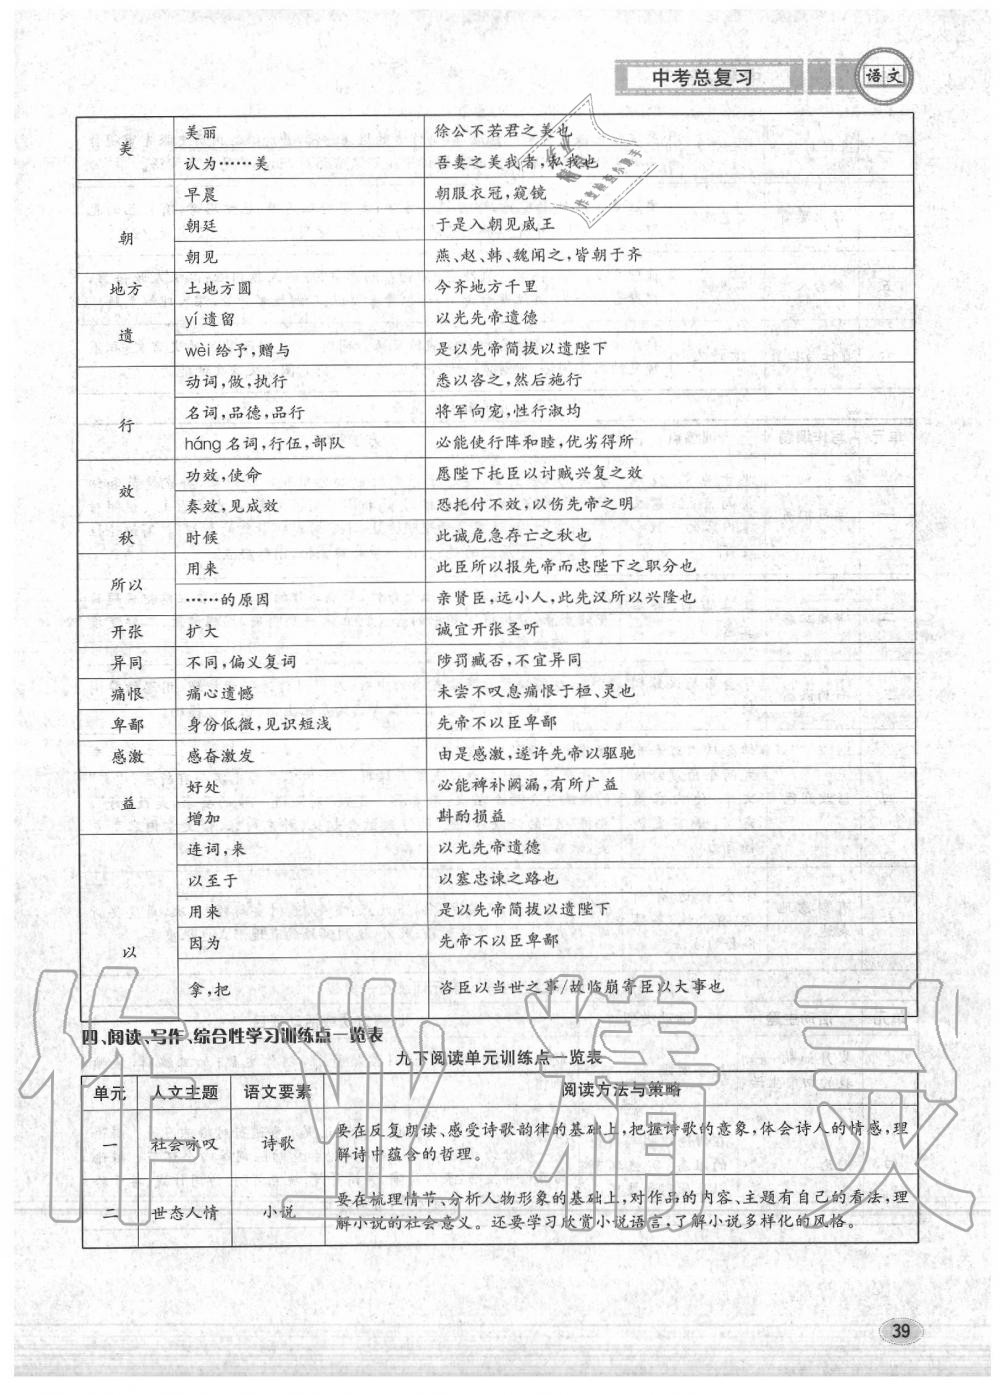 中考总复习 语文
美 美丽 徐公不若君之美也
认为……美 吾妻之美我者,私我也
朝 早晨 朝服衣冠,窥镜
朝廷 于是入朝见威王
朝见 燕、赵、韩、魏闻之,皆朝于齐
地方 土地方圆 今齐地方千里
遗 yí 遗留 以光先帝遗德
wèi 给予,赠与 是以先帝简拔以遗陛下
行 动词,做,执行 悉以咨之,然后施行
名词,品德,品行 将军向宠,性行淑均
háng 名词,行伍,部队 必能使行阵和睦,优劣得所
效 功效,使命 愿陛下托臣以讨贼兴复之效
奏效,见成效 恐托付不效,以伤先帝之明
秋 时候 此诚危急存亡之秋也
所以 用来 此臣所以报先帝而忠陛下之职分也
……的原因 亲贤臣,远小人,此先汉所以兴隆也
开张 扩大 诚宜开张圣听
异同 不同,偏义复词 陟罚臧否,不宜异同
痛恨 痛心遗憾 未尝不叹息痛恨于桓、灵也
卑鄙 身份低微,见识短浅 先帝不以臣卑鄙
感激 感奋激发 由是感激,遂许先帝以驱驰
益 好处 必能裨补阙漏,有所广益
增加 斟酌损益
以 连词,来 以光先帝遗德
以至于 以塞忠谏之路也
用来 是以先帝简拔以遗陛下
因为 先帝不以臣卑鄙
拿,把 咨臣以当世之事/故临崩寄臣以大事也
四、阅读、写作、综合性学习训练点一览表
九下阅读单元训练点一览表
单元 人文主题 语文要素 阅读方法与策略
一 社会咏叹 诗歌 要在反复朗读、感受诗歌韵律的基础上,把握诗歌的意象,体会诗人的情感,理
解诗中蕴含的哲理。
二 世态人情 小说 要在梳理情节、分析人物形象的基础上,对作品的内容、主题有自己的看法,理
解小说的社会意义。还要学习欣赏小说语言,了解小说多样化的风格。
作业精灵
39